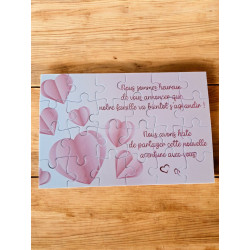 Nous sommes heureux
de vous annoncer que
notre famille va bientôt s'agrandir !
Nous avons hâte
de partager cette nouvelle
aventure avec vous